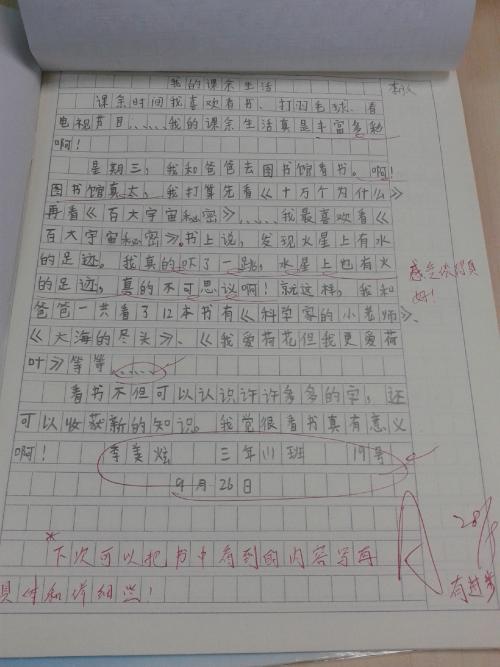 我的课余生活
课余时间我喜欢看书、打羽毛球、看
电视节目……我的课余生活真是丰富多彩
啊！
星期三，我和爸爸去图书馆看书。啊！
图书馆真大，我打算先看《十万个为什么》
再看《百大宇宙秘密》……我最喜欢看《
百大宇宙秘密》。书上说，发现火星上有水
的足迹。我真的吓了一跳，水星上也有火
的足迹，真的不可思议啊！就这样，我和
感觉你写得真
好！
爸爸一共看了12本书有《科学家的小老师》
《大海的尽头》、《我爱荷花但我更爱荷
叶》等等……
看书不但可以认识许许多多的字，还
可以收获新的知识。我觉很看书真有意义
啊！ 李美炫 三年(1)班 19号
9月26日
下次可以把书中看到的内容写再
具体和详细些！
28/9
有进步